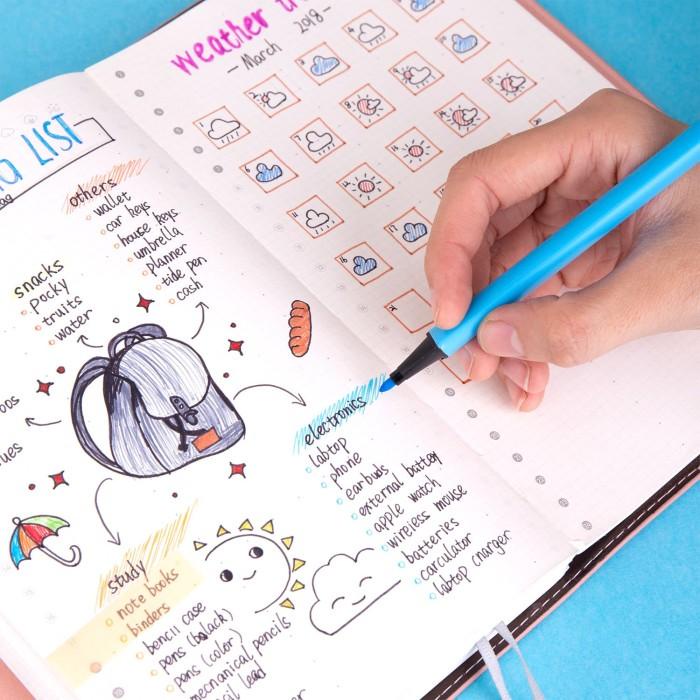 LIST
others
wallet
car keys
house keys
umbrella
planner
tide pen
cash
snacks
Pocky
truits
water
electronics
labtop
phone
earbuds
external battery
apple watch
wireless mouse
batteries
carculator
labtop cnarger
study
note books
binders
bencil case
pens (black)
pens (color)
mecnanical pencils
lead
weather
- March 2018 -